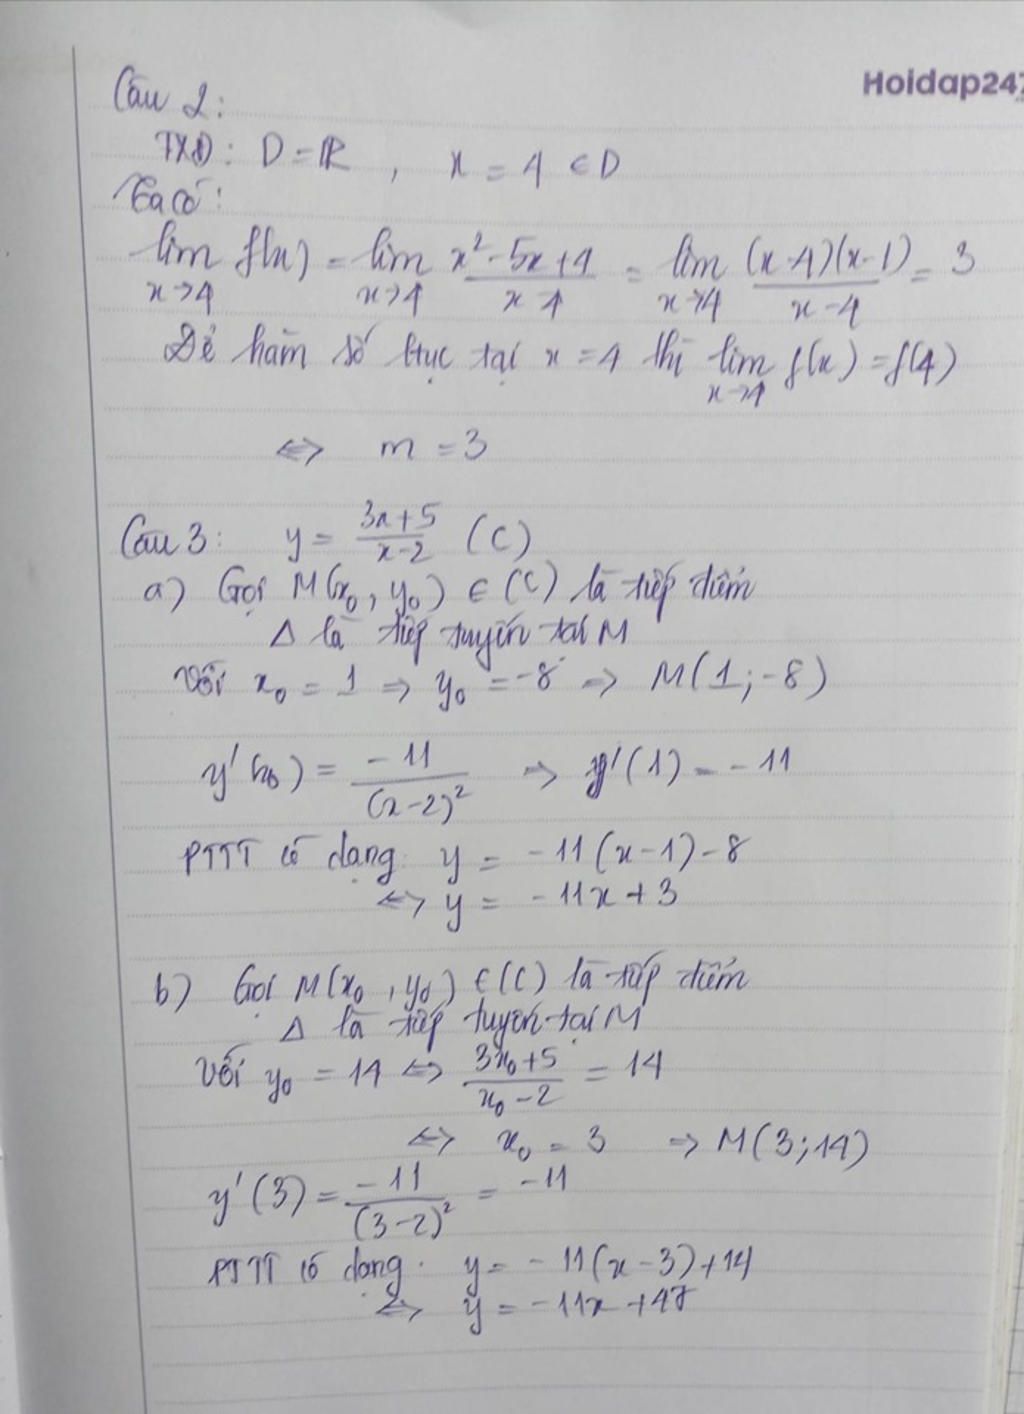 Hoidap247
Câu 2:
TXĐ: D = ℝ , x = 4 ∈ D
Ta có:
lim f(x) = lim x² - 5x + 4 / x - 4 = lim (x-4)(x-1) / x - 4 = 3
x→4 x→4 x→4
Để hàm số ltục tại x = 4 thì lim f(x) = f(4)
x→4
⇔ m = 3
Câu 3: y = 3x+5 / x-2 (C)
a) Gọi M(x₀, y₀) ∈ (C) là tiếp điểm
Δ là tiếp tuyến tại M
Với x₀ = 1 ⇒ y₀ = -8 ⇒ M(1; -8)
y'(x₀) = -11 / (x-2)² ⇒ y'(1) = -11
PTTT có dạng: y = -11(x-1) - 8
⇔ y = -11x + 3
b) Gọi M(x₀, y₀) ∈ (C) là tiếp điểm
Δ là tiếp tuyến tại M
Với y₀ = 14 ⇔ 3x₀+5 / x₀-2 = 14
⇔ x₀ = 3 ⇒ M(3; 14)
y'(3) = -11 / (3-2)² = -11
PTTT có dạng: y = -11(x-3) + 14
⇔ y = -11x + 47